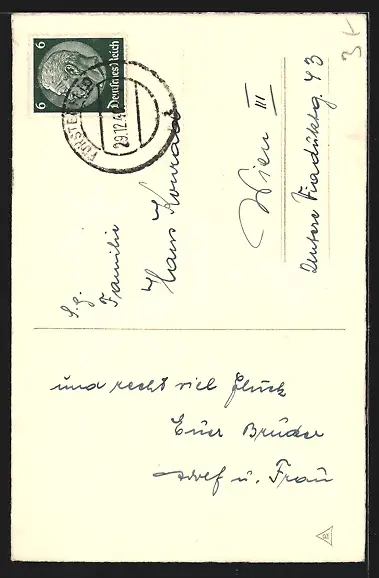 6 6
Deutsches Reich
29.12.4
3t
S.g.
Familie
Hans Konrad
Wien III
Untere Viaduktg. 43
und recht viel Glück
Euer Brüder
Adolf u. Frau